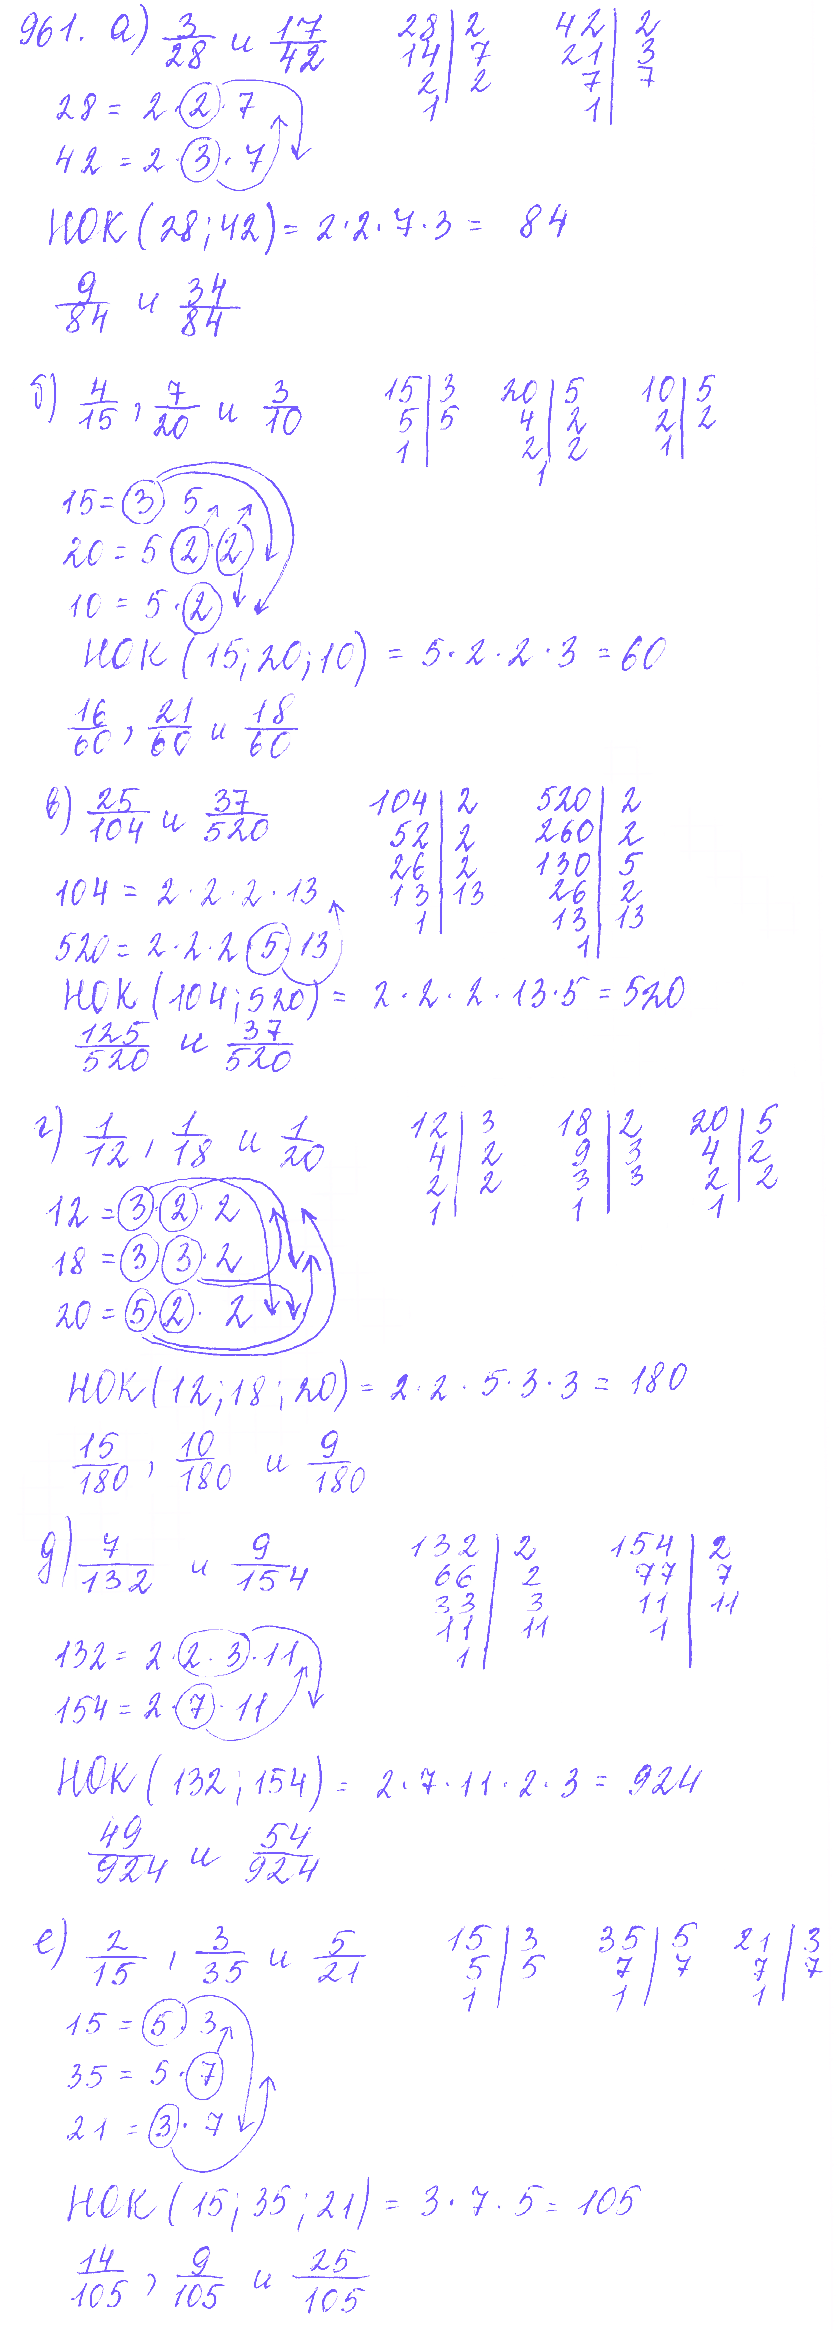 961. а) 3/28 и 17/42   28 | 2   42 | 2
14 | 7   21 | 3
2 | 2   7 | 7
1 |   1 |
28 = 2 · 2 · 7
42 = 2 · 3 · 7
НОК (28; 42) = 2 · 2 · 7 · 3 = 84
9/84 и 34/84
б) 4/15, 7/20 и 3/10   15 | 3   20 | 5   10 | 5
5 | 5   4 | 2   2 | 2
1 |   2 | 2   1 |
1
15 = 3 5
20 = 5 2 · 2
10 = 5 · 2
НОК (15; 20; 10) = 5 · 2 · 2 · 3 = 60
16/60, 21/60 и 18/60
в) 25/104 и 37/520   104 | 2   520 | 2
52 | 2   260 | 2
26 | 2   130 | 5
13 | 13   26 | 2
1 |   13 | 13
1 |
104 = 2 · 2 · 2 · 13
520 = 2 · 2 · 2 5 · 13
НОК (104; 520) = 2 · 2 · 2 · 13 · 5 = 520
125/520 и 37/520
г) 1/12, 1/18 и 1/20   12 | 3   18 | 2   20 | 5
4 | 2   9 | 3   4 | 2
2 | 2   3 | 3   2 | 2
1 |   1 |   1 |
12 = 3 · 2 · 2
18 = 3 3 · 2
20 = 5 · 2 · 2
НОК (12; 18; 20) = 2 · 2 · 5 · 3 · 3 = 180
15/180, 10/180 и 9/180
д) 7/132 и 9/154   132 | 2   154 | 2
66 | 2   77 | 7
33 | 3   11 | 11
11 | 11   1 |
1 |
132 = 2 · 2 · 3 · 11
154 = 2 · 7 · 11
НОК (132; 154) = 2 · 7 · 11 · 2 · 3 = 924
49/924 и 54/924
е) 2/15, 3/35 и 5/21   15 | 3   35 | 5   21 | 3
5 | 5   7 | 7   7 | 7
1 |   1 |   1 |
15 = 5 · 3
35 = 5 · 7
21 = 3 · 7
НОК (15; 35; 21) = 3 · 7 · 5 = 105
14/105, 9/105 и 25/105